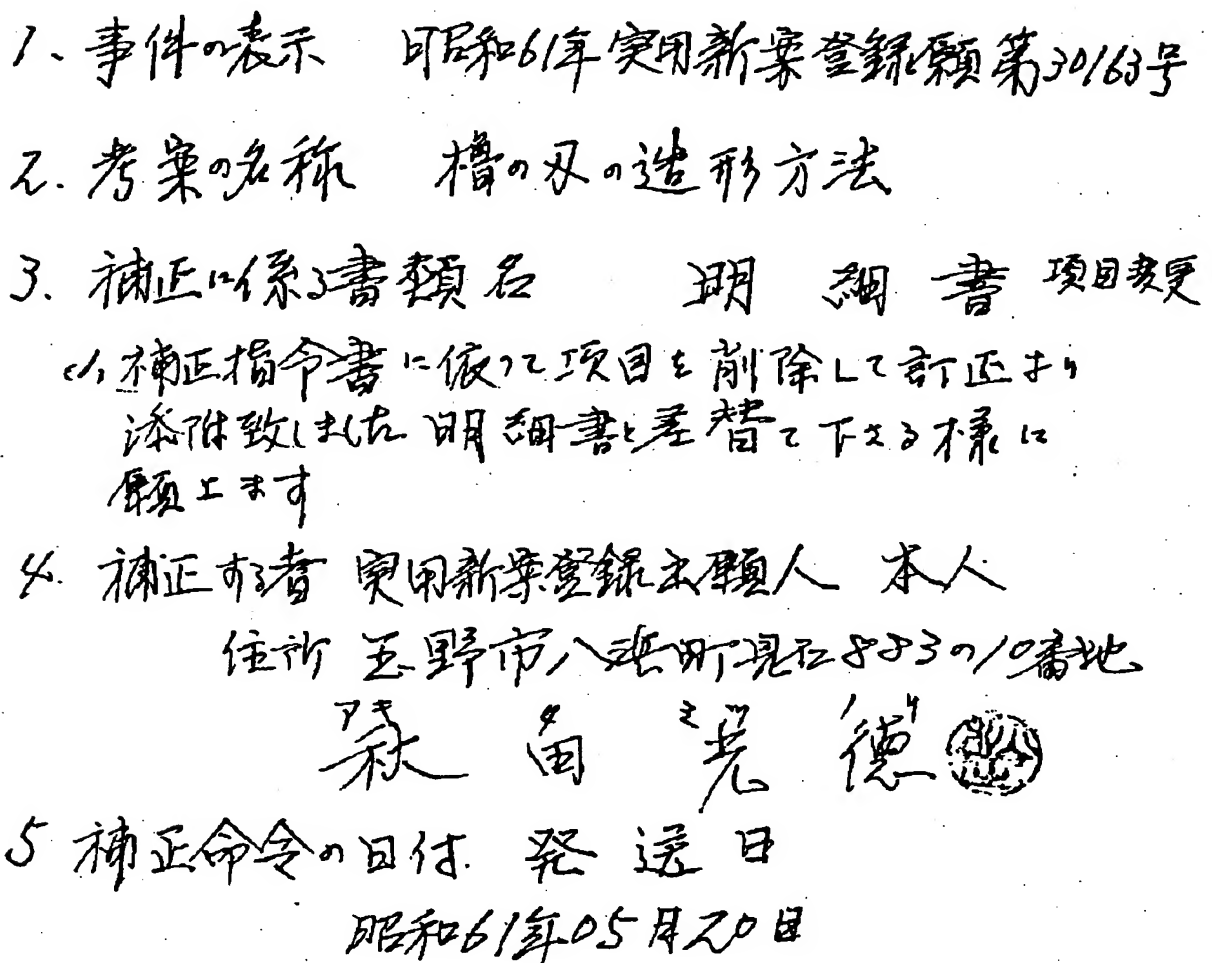 1、事件の表示 昭和61年実用新案登録願第30163号
2. 考案の名称 櫓の刄の造形方法
3、補正に係る書類名 明細書 項目変更
(1) 補正指令書に依って項目を削除して訂正
添附致しました 明細書と差替て下さる様に
願上ます
4. 補正する者 実用新案登録出願人 本人
住所 玉野市八浜町見石883の10番地
アキ タ ミツ ノリ
秋田 光徳
5 補正命令の日付. 発送日
昭和61年05月20日